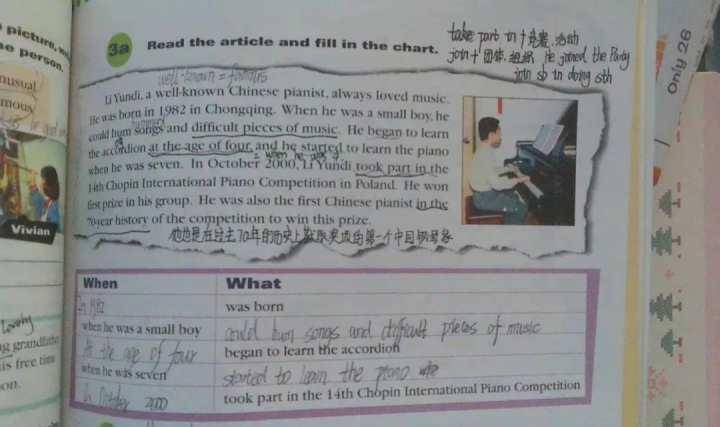 picture,
person.
nusual
mous
Vivian
lovely
g grandfathe
is free time
on.
3a Read the article and fill in the chart.
take part in + 竞赛.活动
join + 团体.组织 He joined the Party
join sb in doing sth
only 26
well-known = famous
Li Yundi, a well-known Chinese pianist, always loved music.
He was born in 1982 in Chongqing. When he was a small boy, he
could hum songs and difficult pieces of music. He began to learn
the accordion at the age of four, and he started to learn the piano
= when he was 4
when he was seven. In October 2000, Li Yundi took part in the
14th Chopin International Piano Competition in Poland. He won
first prize in his group. He was also the first Chinese pianist in the
70-year history of the competition to win this prize.
他也是在过去70年的历史上获取奖项的第一个中国钢琴家
When What
In 1982 was born
when he was a small boy could hum songs and difficult pieces of music
At the age of four began to learn the accordion
when he was seven started to learn the piano
In October 2000 took part in the 14th Chopin International Piano Competition